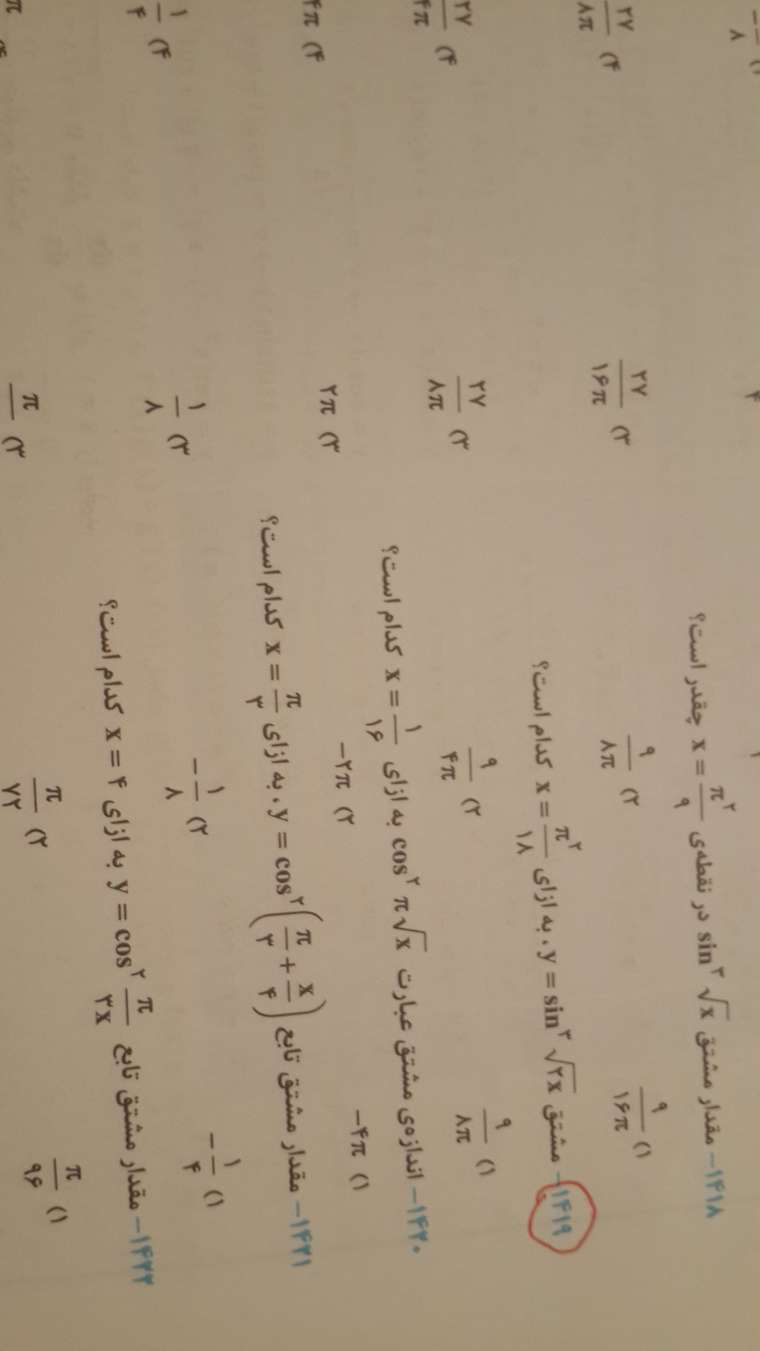 ۱۴۱۸– مقدار مشتق sin³ √x در نقطه‌ی x = π²/۹ چقدر است؟
۱) ۹/۱۶π ۲) ۹/۸π ۳) ۲۷/۱۶π ۴) ۲۷/۸π
۱۴۱۹– مشتق y = sin³ √۲x ، به ازای x = π²/۱۸ کدام است؟
۱) ۹/۸π ۲) ۹/۴π ۳) ۲۷/۸π ۴) ۲۷/۴π
۱۴۲۰– اندازه‌ی مشتق عبارت cos² π√x به ازای x = ۱/۱۶ کدام است؟
۱) −۴π ۲) −۲π ۳) ۲π ۴) ۴π
۱۴۲۱– مقدار مشتق تابع y = cos²(π/۳ + x/۴) ، به ازای x = π/۳ کدام است؟
۱) −۱/۴ ۲) −۱/۸ ۳) ۱/۸ ۴) ۱/۴
۱۴۲۲– مقدار مشتق تابع y = cos² π/۳x به ازای x = ۴ کدام است؟
۱) π/۹۶ ۲) π/۷۲ ۳) π